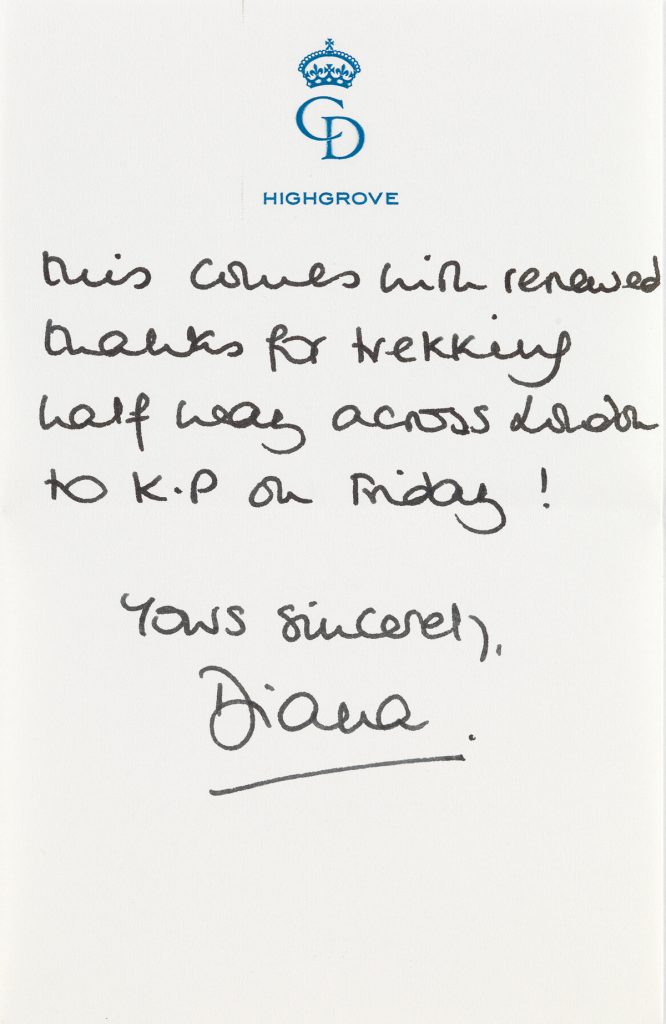 CD
HIGHGROVE
this comes with renewed
thanks for trekking
half way across London
to K.P on Friday !
Yours sincerely,
Diana.